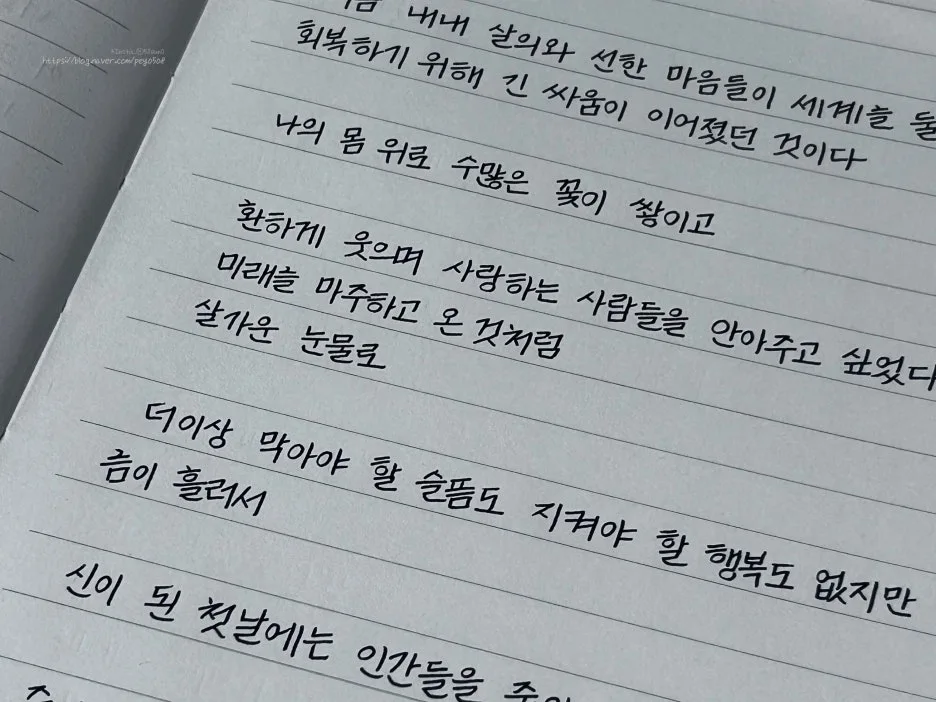 https://blog.naver.com/pego5o8
내내 살의와 선한 마음들이 세계를 둘
회복하기 위해 긴 싸움이 이어졌던 것이다
나의 몸 위로 수많은 꽃이 쌓이고
환하게 웃으며 사랑하는 사람들을 안아주고 싶었다
미래를 마주하고 온 것처럼
살가운 눈물로
더이상 막아야 할 슬픔도 지켜야 할 행복도 없지만
금이 흘러서
신이 된 첫날에는 인간들을